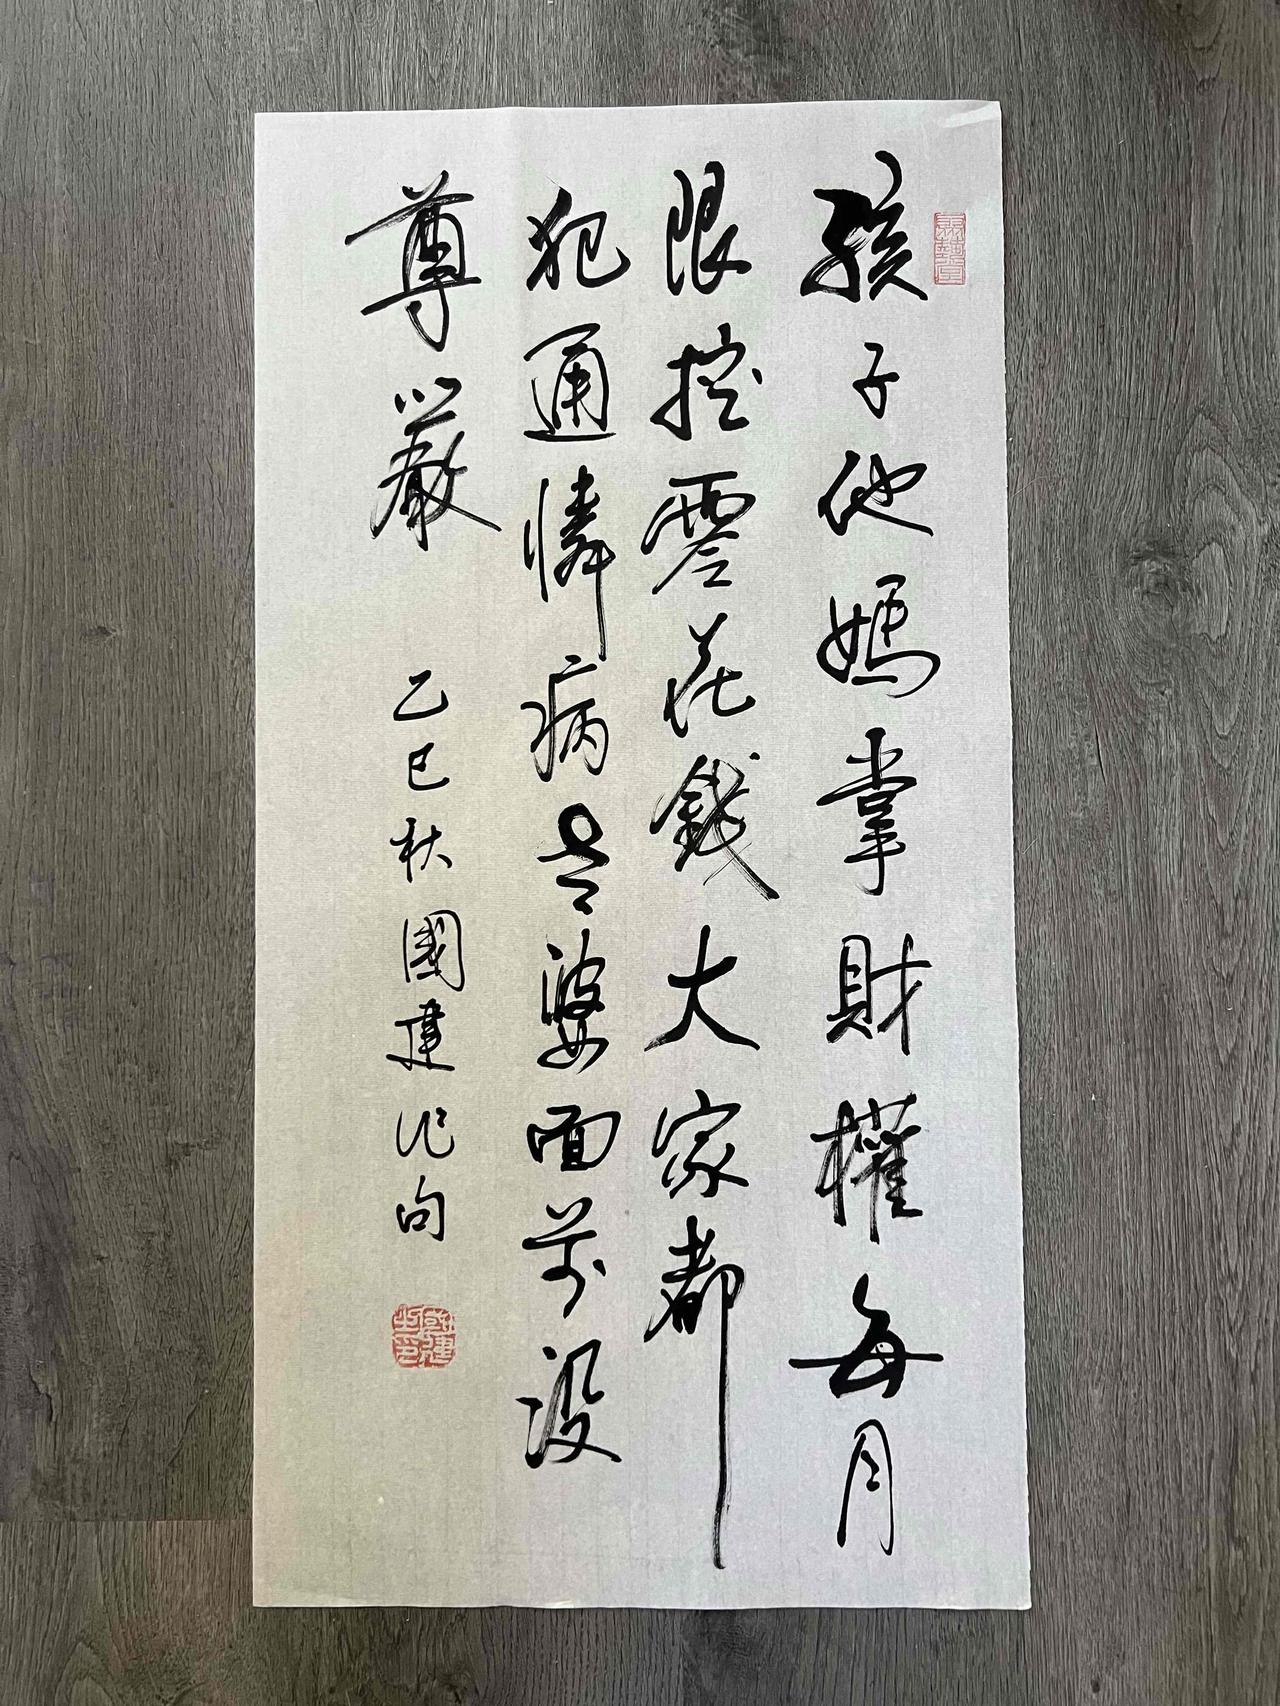 孩子他媽掌財權每月
限控零花錢大家都
犯通憐病老婆面前沒
尊嚴
乙巳秋國建作句